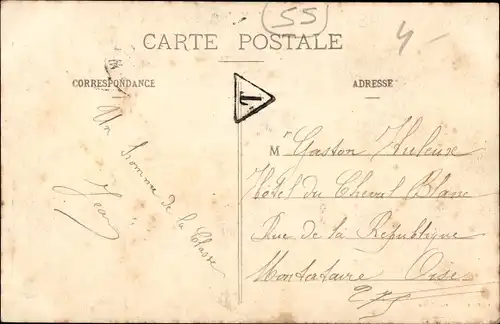 55
4-
CARTE POSTALE
CORRESPONDANCE
ADRESSE
T
Un homme de la Classe
Jean
Mr Gaston Huleux
Hôtel du Cheval Blanc
Rue de la République
Montataire Oise